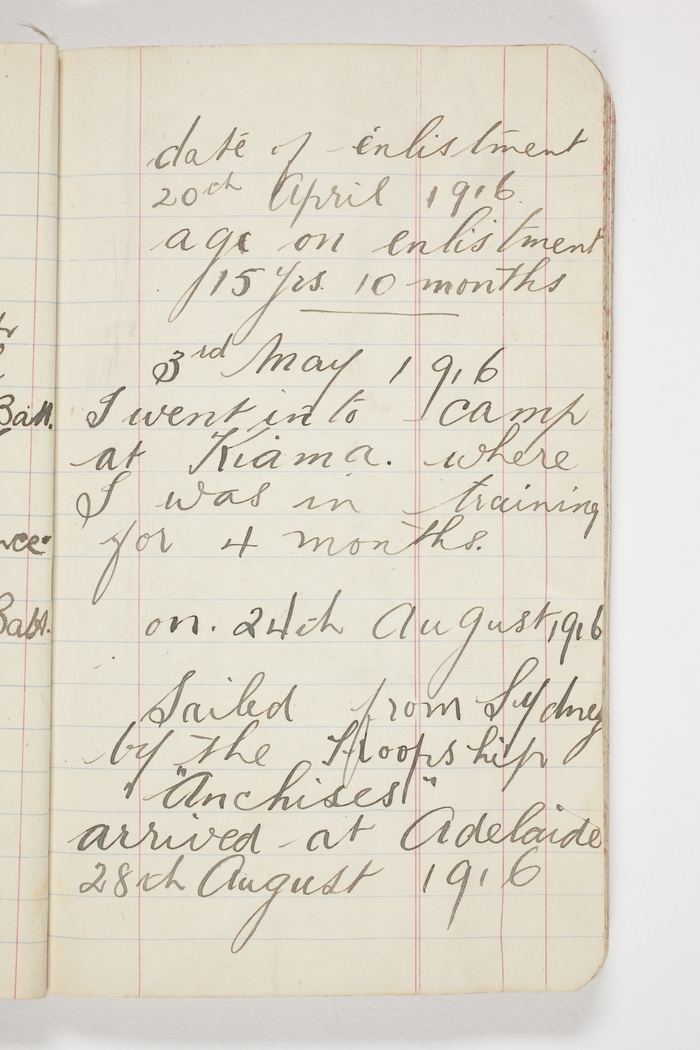 date of enlistment
20th April 1916
age on enlistment
15 yrs. 10 months
3rd May 1916
I went into camp
at Kiama. where
I was in training
for 4 months.
on. 24th August 1916
Sailed from Sydney
by the Troopship
"Anchises"
arrived at Adelaide
28th August 1916
Batt.
Batt.